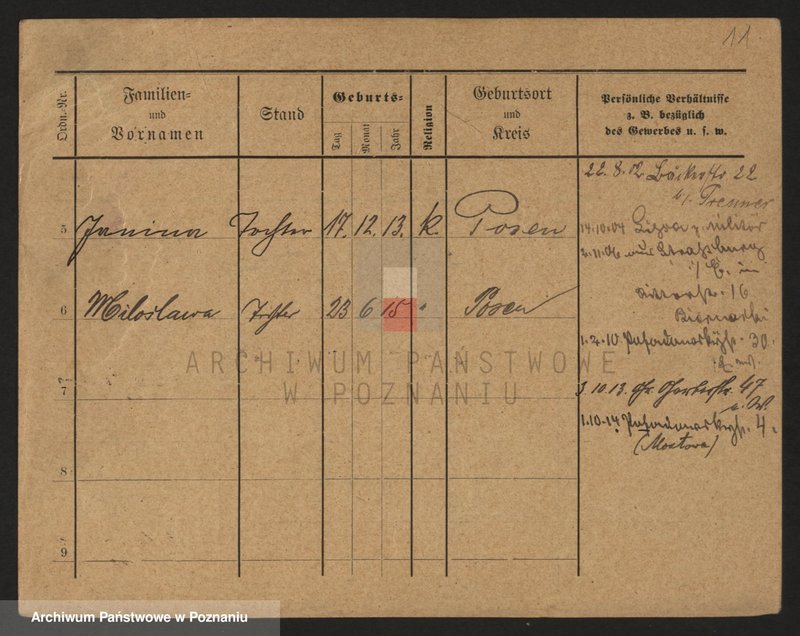 11
Ordn.-Nr.
Familien-
und
Vornamen
Stand
Geburts-
Tag
Monat
Jahr
Religion
Geburtsort
und
Kreis
Persönliche Verhältnisse
z. B. bezüglich
des Gewerbes u. s. w.
22. 8. 02 Bäckerstr. 22
b/
5 Janina Tochter 17. 12. 13. k. Posen
14.10.04 militär
2.11.06 aus Straßburg
i/E. in
Ritterstr. 16
6 Miloslawa Tochter 23 6 15 " Posen
1.2.10 30
7
3.10.13 Gr. Gerberstr. 47
1.10.14 4
(Mostowa)
8
9
ARCHIWUM PAŃSTWOWE
W POZNANIU
Archiwum Państwowe w Poznaniu